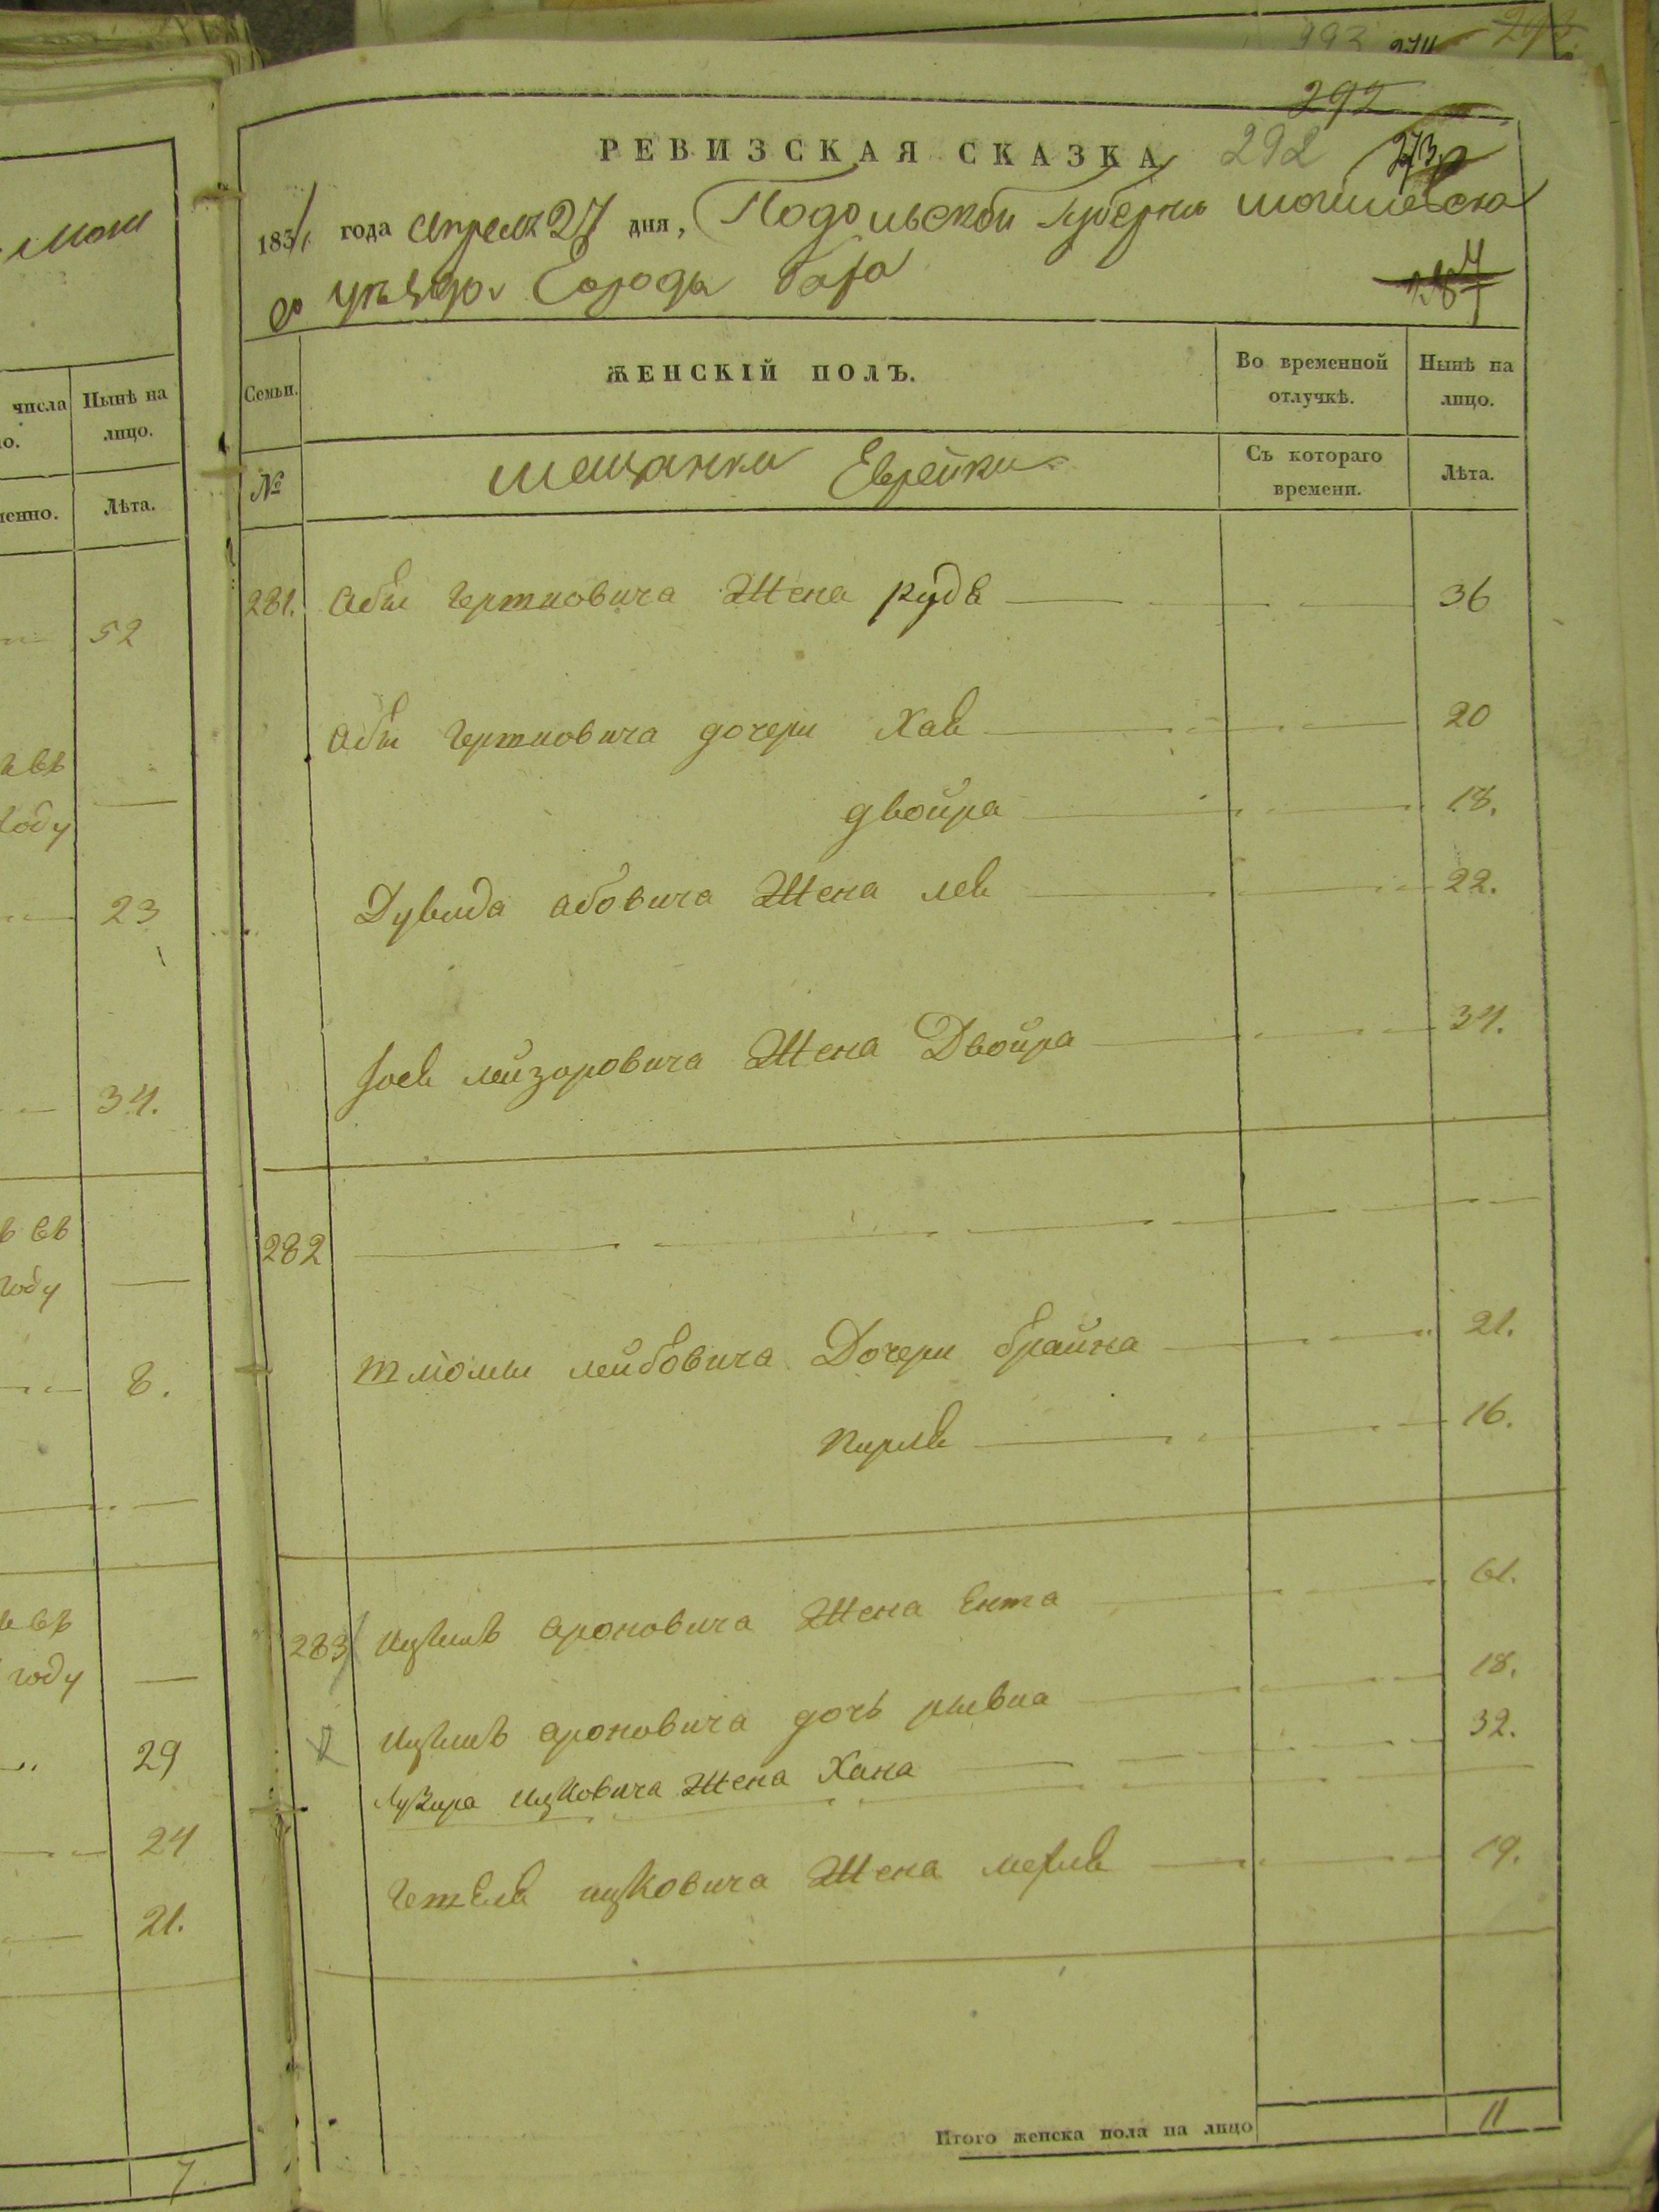 292
РЕВИЗСКАЯ СКАЗКА 292 273
183 года апреля 27 дня, Подольской Губернiи могилевска
го уѣзда Города бара
Семьи.
ЖЕНСКІЙ ПОЛЪ.
Во временной отлучкѣ.
Нынѣ на лицо.
№
мещанки Еврейки
Съ котораго времени.
Лѣта.
281. Абы Гершковича Жена рудя 36
Абы Гершковича дочери Хая 20
двойра 18.
Дувида абовича Жена лея 22.
лейзоровича Жена Двойра 34.
282
шлiомы лейбовича Дочери брайна 21.
перля 16.
283 ицька ароновича Жена Ента 61.
ицька ароновича дочь рывка 18.
лузира ицковича Жена Хана 32.
ицковича Жена 19.
Итого женска пола на лицо 11
числа
Нынѣ на лицо.
Лѣта.
52
году
23
34.
въ
году
8.
году
29
24
21.
7